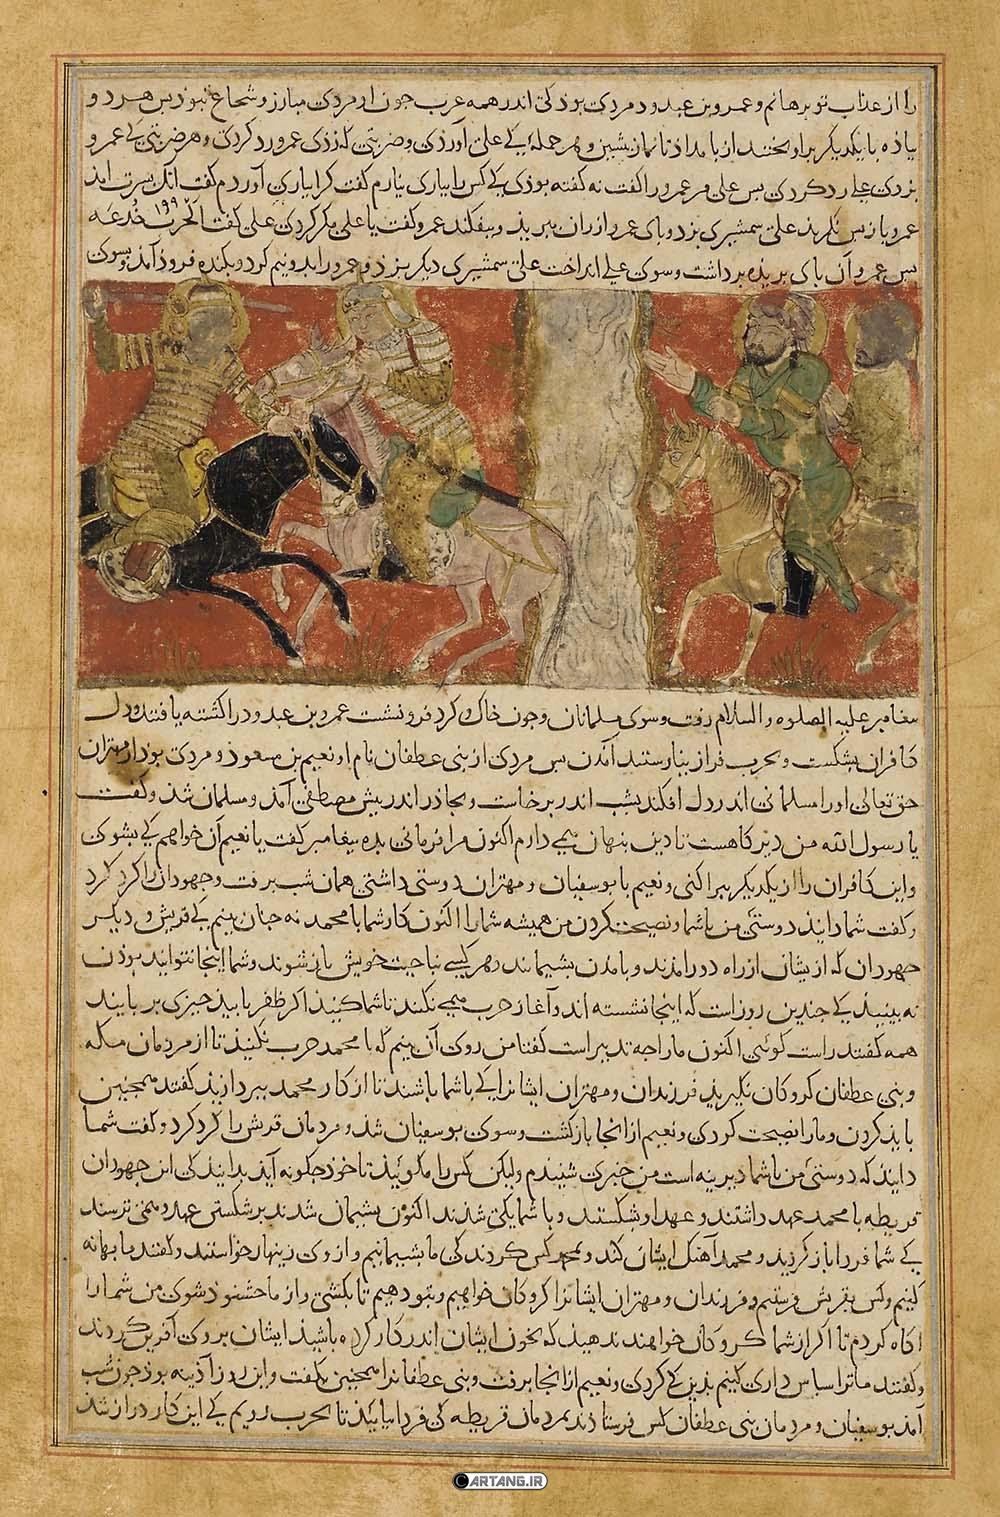 را از عذاب تو برهانم و عمرو بن عبدود مردی بود کی اندر همه عرب چون او مردی مبارز و شجاع نبود بس هر دو
بیاده با یکدیگر براویختند از بامداد تا نماز بشین و بهر حمله‌ای کی علی آوردی و ضربتی که زدی عمرو رد کردی و هر ضربتی کی عمرو
بزدی علی رد کردی بس علی مر عمرو را گفت نه گفته بودی کی کس را بیاری نیارم گفت کرا بیاری آوردم گفت انک بسرت آمد
۱۹۹
عمرو باز بس نکرید علی شمشیری بزد و بای عمرو از ران ببرید و بیفکند عمرو گفت یا علی مکر کردی علی گفت الحرب خدعه
بس عمرو آن بای بریده برداشت و سوی علی انداخت علی شمشیری دیگر بزد و عمرو را بدو نیم کرد و بکنده فرود آمد و بسوی
بیغامبر علیه الصلوه والسلام رفت و سوی مسلمانان و چون خاک و کرد فرو نشست عمرو بن عبدود را کشته یافتند و دل
کافران بشکست و بحرب فراز نیارستند آمدن بس مردی از بنی عطفان نام او نعیم بن مسعود و مردی بود از مهتران
حق تعالی او را مسلمانی اندر دل افکند بشب اندر برخاست و بیش مصطفی آمد و مسلمان شد و گفت
یا رسول الله من دیرگاهست تا دین بنهان همی دارم اکنون مرا فرمانی بده بیغامبر گفت یا نعیم آن خواهم کی بشوی
و این کافران را از یکدیگر ببراکنی و نعیم با بوسفیان و مهتران دوستی داشتی همان شب برفت و جهودان را کرد کرد
و گفت شما دانید دوستی من با شما و نصیحت کردن من همیشه شما را اکنون کار شما با محمد نه چنان بینم کی قریش و دیگر
جهودان که ازیشان از راه دور آمدند و بامدن بشیمانند و هر کسی بناحیت خویش باز شوند و شما اینجا نتوانید بودن
نه بینید کی چندین روز است که اینجا نشسته اند و آغاز حرب همی نکنند تا شما کنید اگر ظفر یابید چیزی بربایند
همه گفتند راست گوئی اکنون ما را چه تدبیر است گفتا من روی آن بینم که با محمد حرب نکنید تا از مردمان مکه
و بنی عطفان گروگان نگیرید فرزندان و مهتران ایشانرا کی با شما باشند تا از کار محمد ببردازید گفتند همچنین
باید کردن و ما را نصیحت کردی و نعیم از انجا بازگشت و سوی بوسفیان شد و مردمان قریش را کرد کرد و گفت شما
دانید که دوستی من با شما دیرینه است من خبری شنیدم ولیکن کس را مگوئید تا خود چگونه آید بدانید کی این جهودان
قریطه با محمد عهد داشتند و عهد او شکستند و با شما یکی شدند اکنون بشیمان شدند بر شکستن عهد و همی ترسند
کی شما فردا باز گردید و محمد آهنک ایشان کند و بمحمد کس کردند کی ما بشیمانیم و از وی زینهار خواستند و گفتند ما بهانه
کنیم و کس بقریش فرستیم و فرزندان و مهتران ایشانرا گروگان خواهیم و بتو دهیم تا بکشی و از ما خشنود شوی من شما را
آگاه کردم تا اگر از شما گروگان خواهند ندهید که بخون ایشان اندر کار کرده باشید ایشان بر وی آفرین کردند
و گفتند ما ترا سباس داری کنیم بدین کی کردی و نعیم از انجا برفت و بنی عطفانرا همچنین بگفت و این روز آذینه بود چون شب
آمد بوسفیان و مردمان بنی عطفان کس فرستادند بمردمان قریطه کی فردا بیائید تا بحرب رویم کی این کار دراز شد
CARTANG.IR